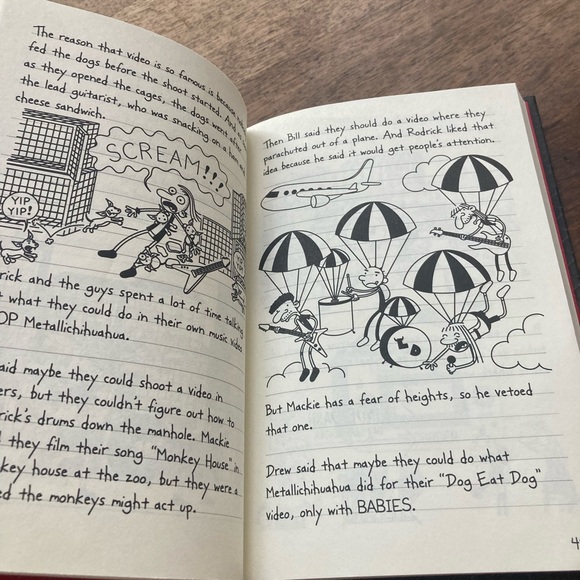 The reason that video is so famous is because
fed the dogs before the shoot started. And
as they opened the cages, the dogs went after
the lead guitarist, who was snacking on a
cheese sandwich.
SCREAM!!!
YIP
YIP!
and the guys spent a lot of time talking
what they could do in their own music video
Metallichihuahua.
maybe they could shoot a video in
but they couldn't figure out how to
drums down the manhole. Mackie
they film their song "Monkey House" in
house at the zoo, but they were
the monkeys might act up.
Then Bill said they should do a video where they
parachuted out of a plane. And Rodrick liked that
idea because he said it would get people's attention.
L D
But Mackie has a fear of heights, so he vetoed
that one.
Drew said that maybe they could do what
Metallichihuahua did for their "Dog Eat Dog"
video, only with BABIES.